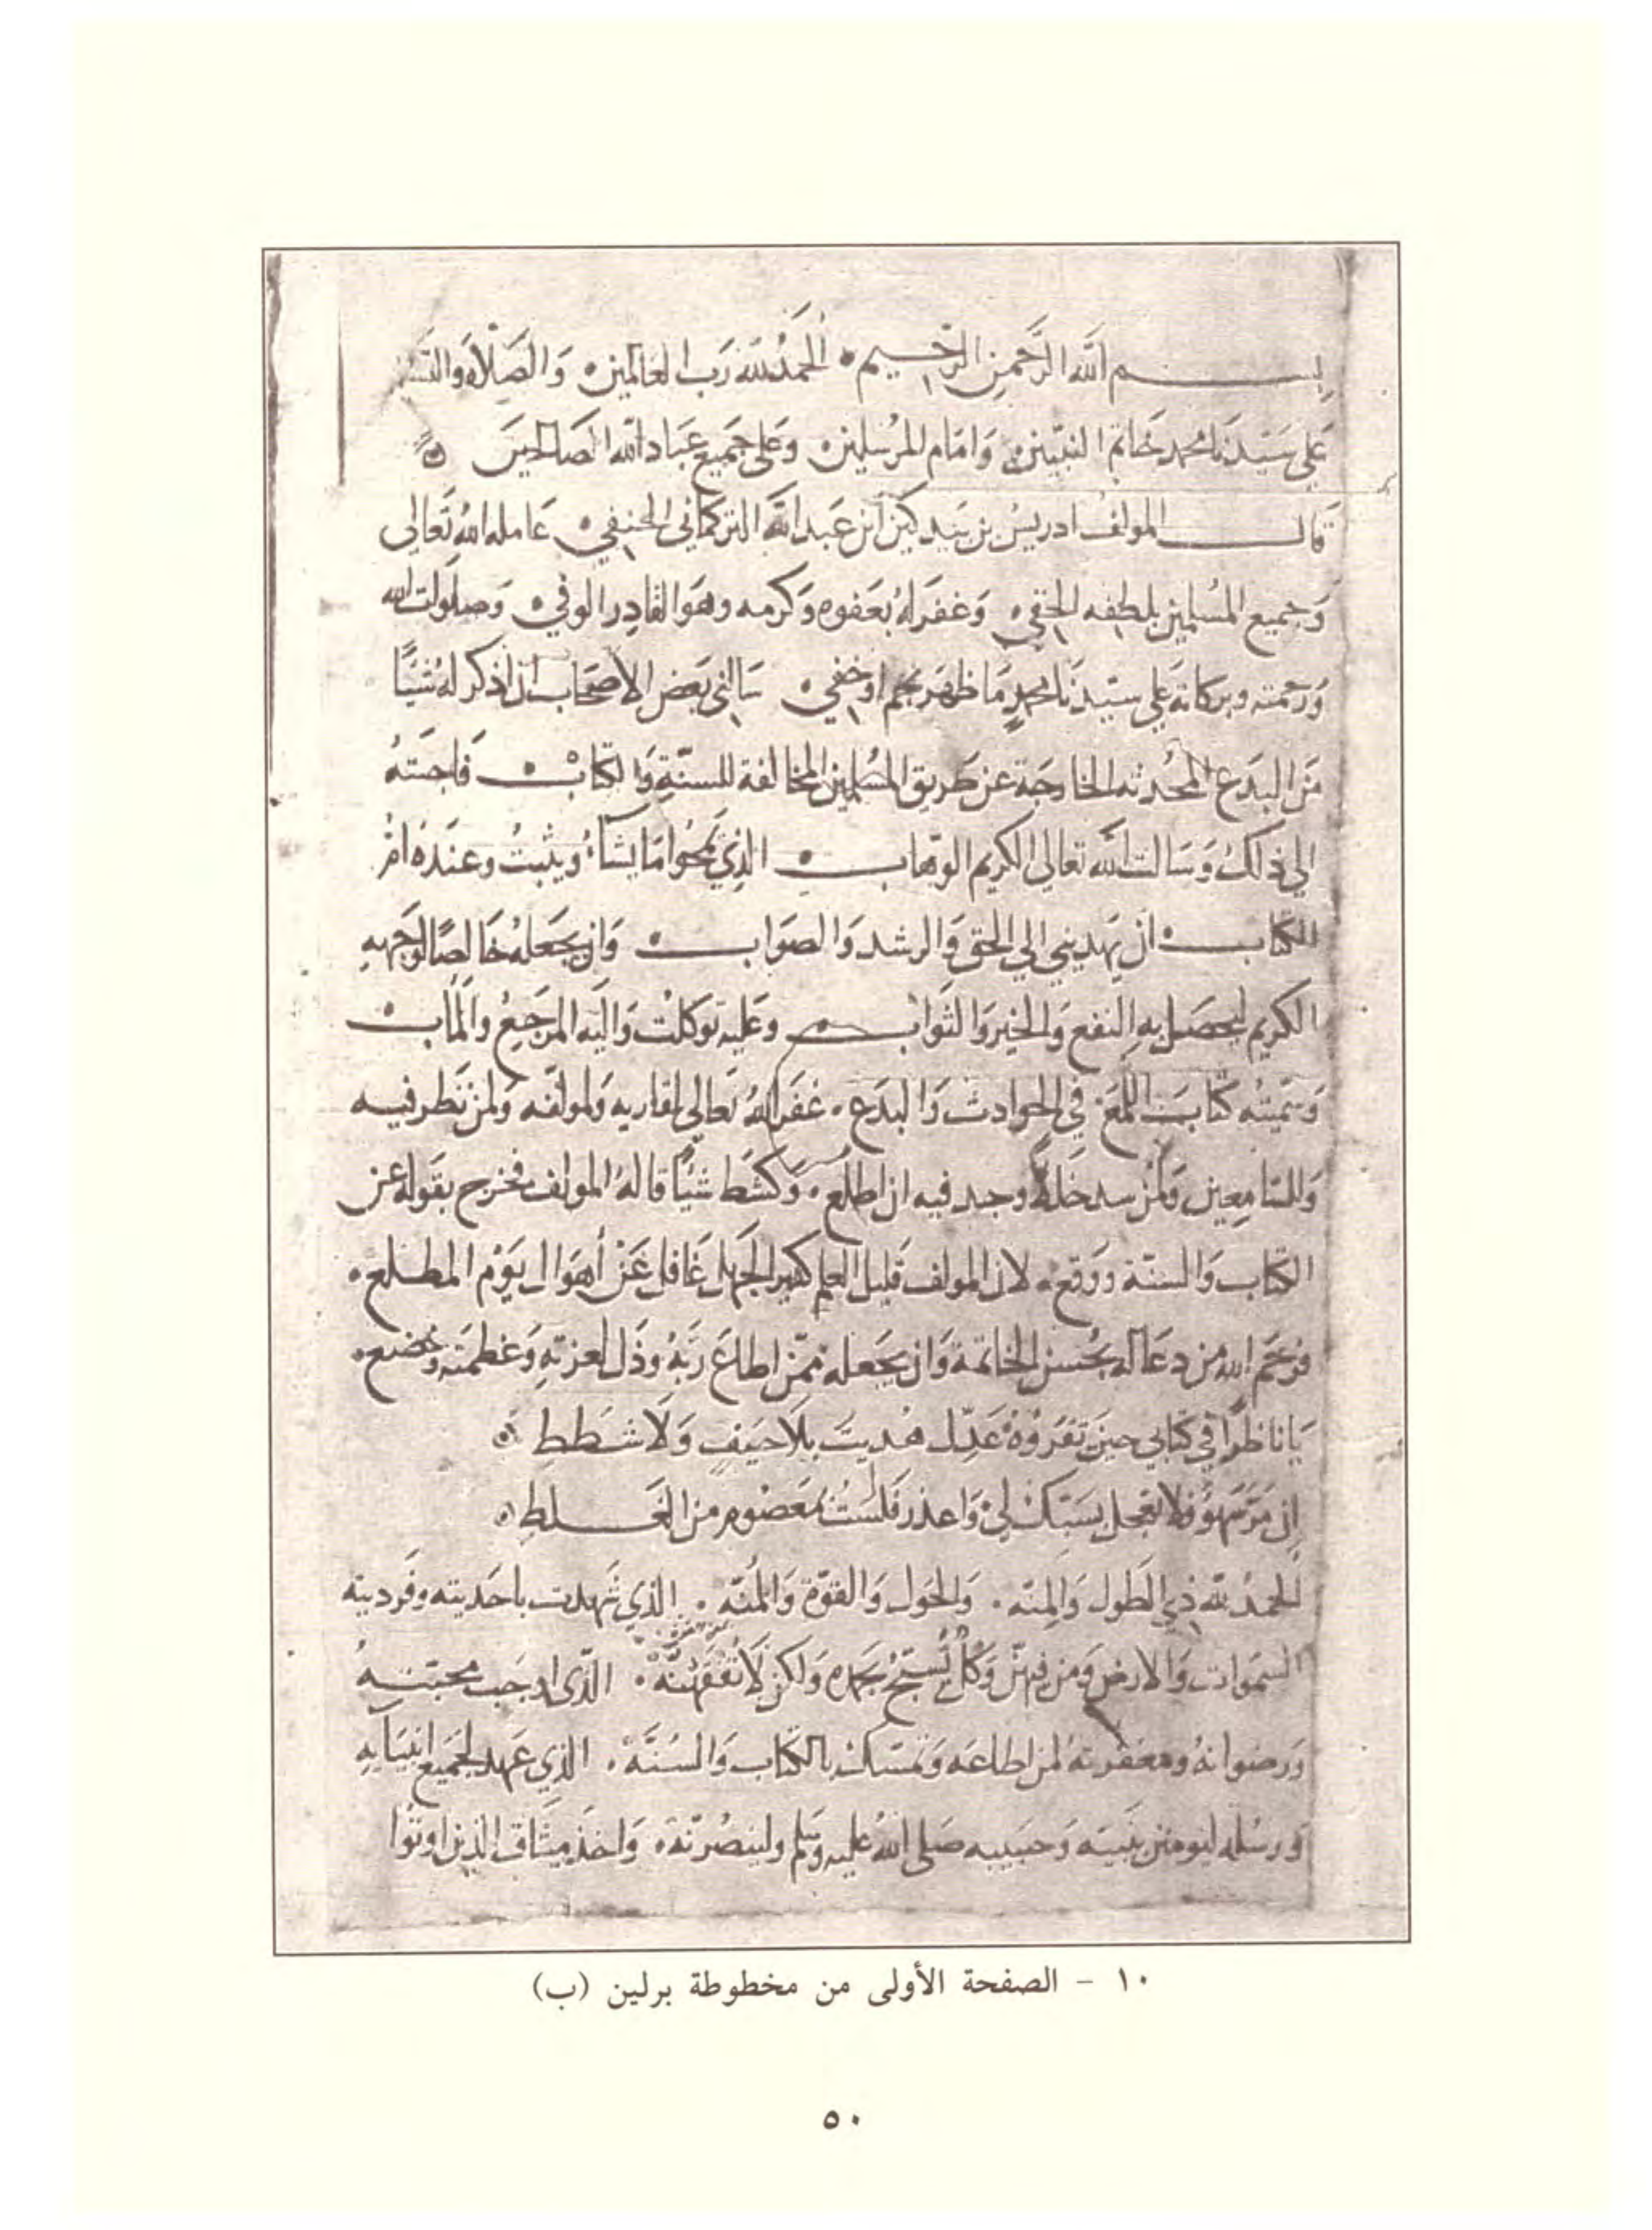 بسم الله الرَّحمن الرَّحيم ۰ الحَمدُ لله رَب العَالمين ۰ وَالصَلاة وَالتسَليم
عَلى سَيّدنَا محمد خَاتم النبيّين ۰ وَامَام المرُسَلين ۰ وعَلى جَميع عبَاد الله الصَالحينَ ۰
قَال المولف ادريسُ بن بَيدكين ابن عَبد الله التركماني الحنفي ۰ عَامله الله تعَالى
وَجميع المسُلمين بلطفه الخفي ۰ وَغفرَ لهُ بعَفوه وَكرمه وهوَ القادِر الوفي ۰ وَصلَوات الله
وَرَحمته وبركاته عَلى سيّدنَا محمدٍ مَا ظهَر نجم اوخفي ۰ سَالني بَعض الاصحَاب ان اذكر لهُ شيًا
مَن البدَع المحُدثه الخارجَة عن طَريق المسُلمين المخالفة للسنّةِ وَالكتابْ ۰ فَاجبتهُ
الي ذلكَ وَسَالت الله تعالى الكريم الوّهاب ۰ الذِي يمَحُوا مَا يشَآءُ ويثبتُ وعندَهُ امُّ
الكتَاب ۰ ان يهديني الي الحق وَالرشد وَالصوَاب ۰ وَان يجَعلهُ خَالصًا لوَجههِ
الكريم ليحصَل بهِ النفع وَالخير وَالثوَاب ۰ وعَليه توَكلتْ وَاليَه المرَجعُ والمَاب ۰
وَسَميّتهُ كتَابَ اللمَّع في الحوادث وَالبدَع ۰ غفَر اللهُ تعَالى لقاريه وَلمولفّه وَلمن نَظر فيه
وَللسّامِعين وَلمن سد خَللاً وجد فيه ان اطلعَ ۰ وَكشَط شيًا قالهُ المولف فخرج بقَوله عن
الكتاب وَالسنّة ووَقع ۰ لان المولف قَليل العلم كثير الجَهل غَافل عَنْ أهوَال يَوْم المطلع ۰
فرَحَم الله من دعَا له بحُسن الخاتمة وَان يجَعله ممّن اطاعَ رَبّهُ وذَل لعزتهِ وَعَظمته وَخضع ۰
يَا ناظرًا في كتَابي حينَ تقرَؤهُ عَدِّل هُديتَ بلَا حيَفٍ وَلَا شطَطِ ۰
إن مرَّ سَهوٌ فلا تعجل بسَبّك لي وَاعذر فَلسَتُ بمعَصُومٍ من الغَلطِ ۰
الحمدُ لله ذي الطَول وَالمنّه ۰ وَالحَول وَالقوّة وَالمُنّه ۰ الذي شَهدت باحَديته وفَرديته
السموَات وَالارض وَمن فيهنّ وَكُلٌّ يُسَبّحُ بحَمده وَلكن لَا تفقَهُنّهْ ۰ الّذي اوجَب محبّتهُ
وَرضوانهُ ومغفرتهُ لمن اطاعَه وَتمسّك بالكتَاب وَالسُنَّهْ ۰ الذِي عَهد لجَميع انبيَايهِ
وَرسُله ليومنن بنَبيّه وَحبيبه صَلى الله عليه وَسَلم ولينصُرنّهْ ۰ وَاخذ ميثَاق الذين اوتوُا
١٠ - الصفحة الأولى من مخطوطة برلين (ب)
٥٠